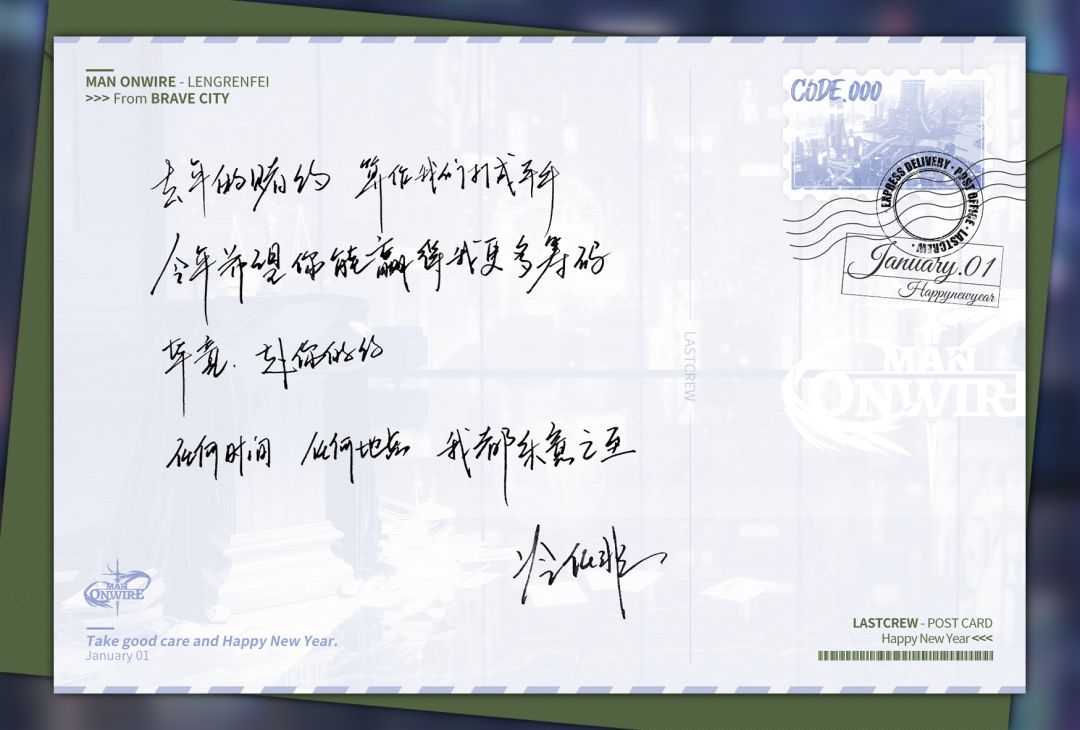 MAN ONWIRE - LENGRENFEI
>>> From BRAVE CITY
CODE.000
EXPRESS DELIVERY · POST OFFICE · LASTCREW ·
January.01
Happynewyear
去年的赌约 算作我们打成平手
今年希望你能赢得我更多筹码
毕竟，赴你的约
任何时间 任何地点 我都乐意之至
冷任非
LASTCREW
MAN
ONWIRE
MAN
ONWIRE
Take good care and Happy New Year.
January 01
LASTCREW - POST CARD
Happy New Year <<<